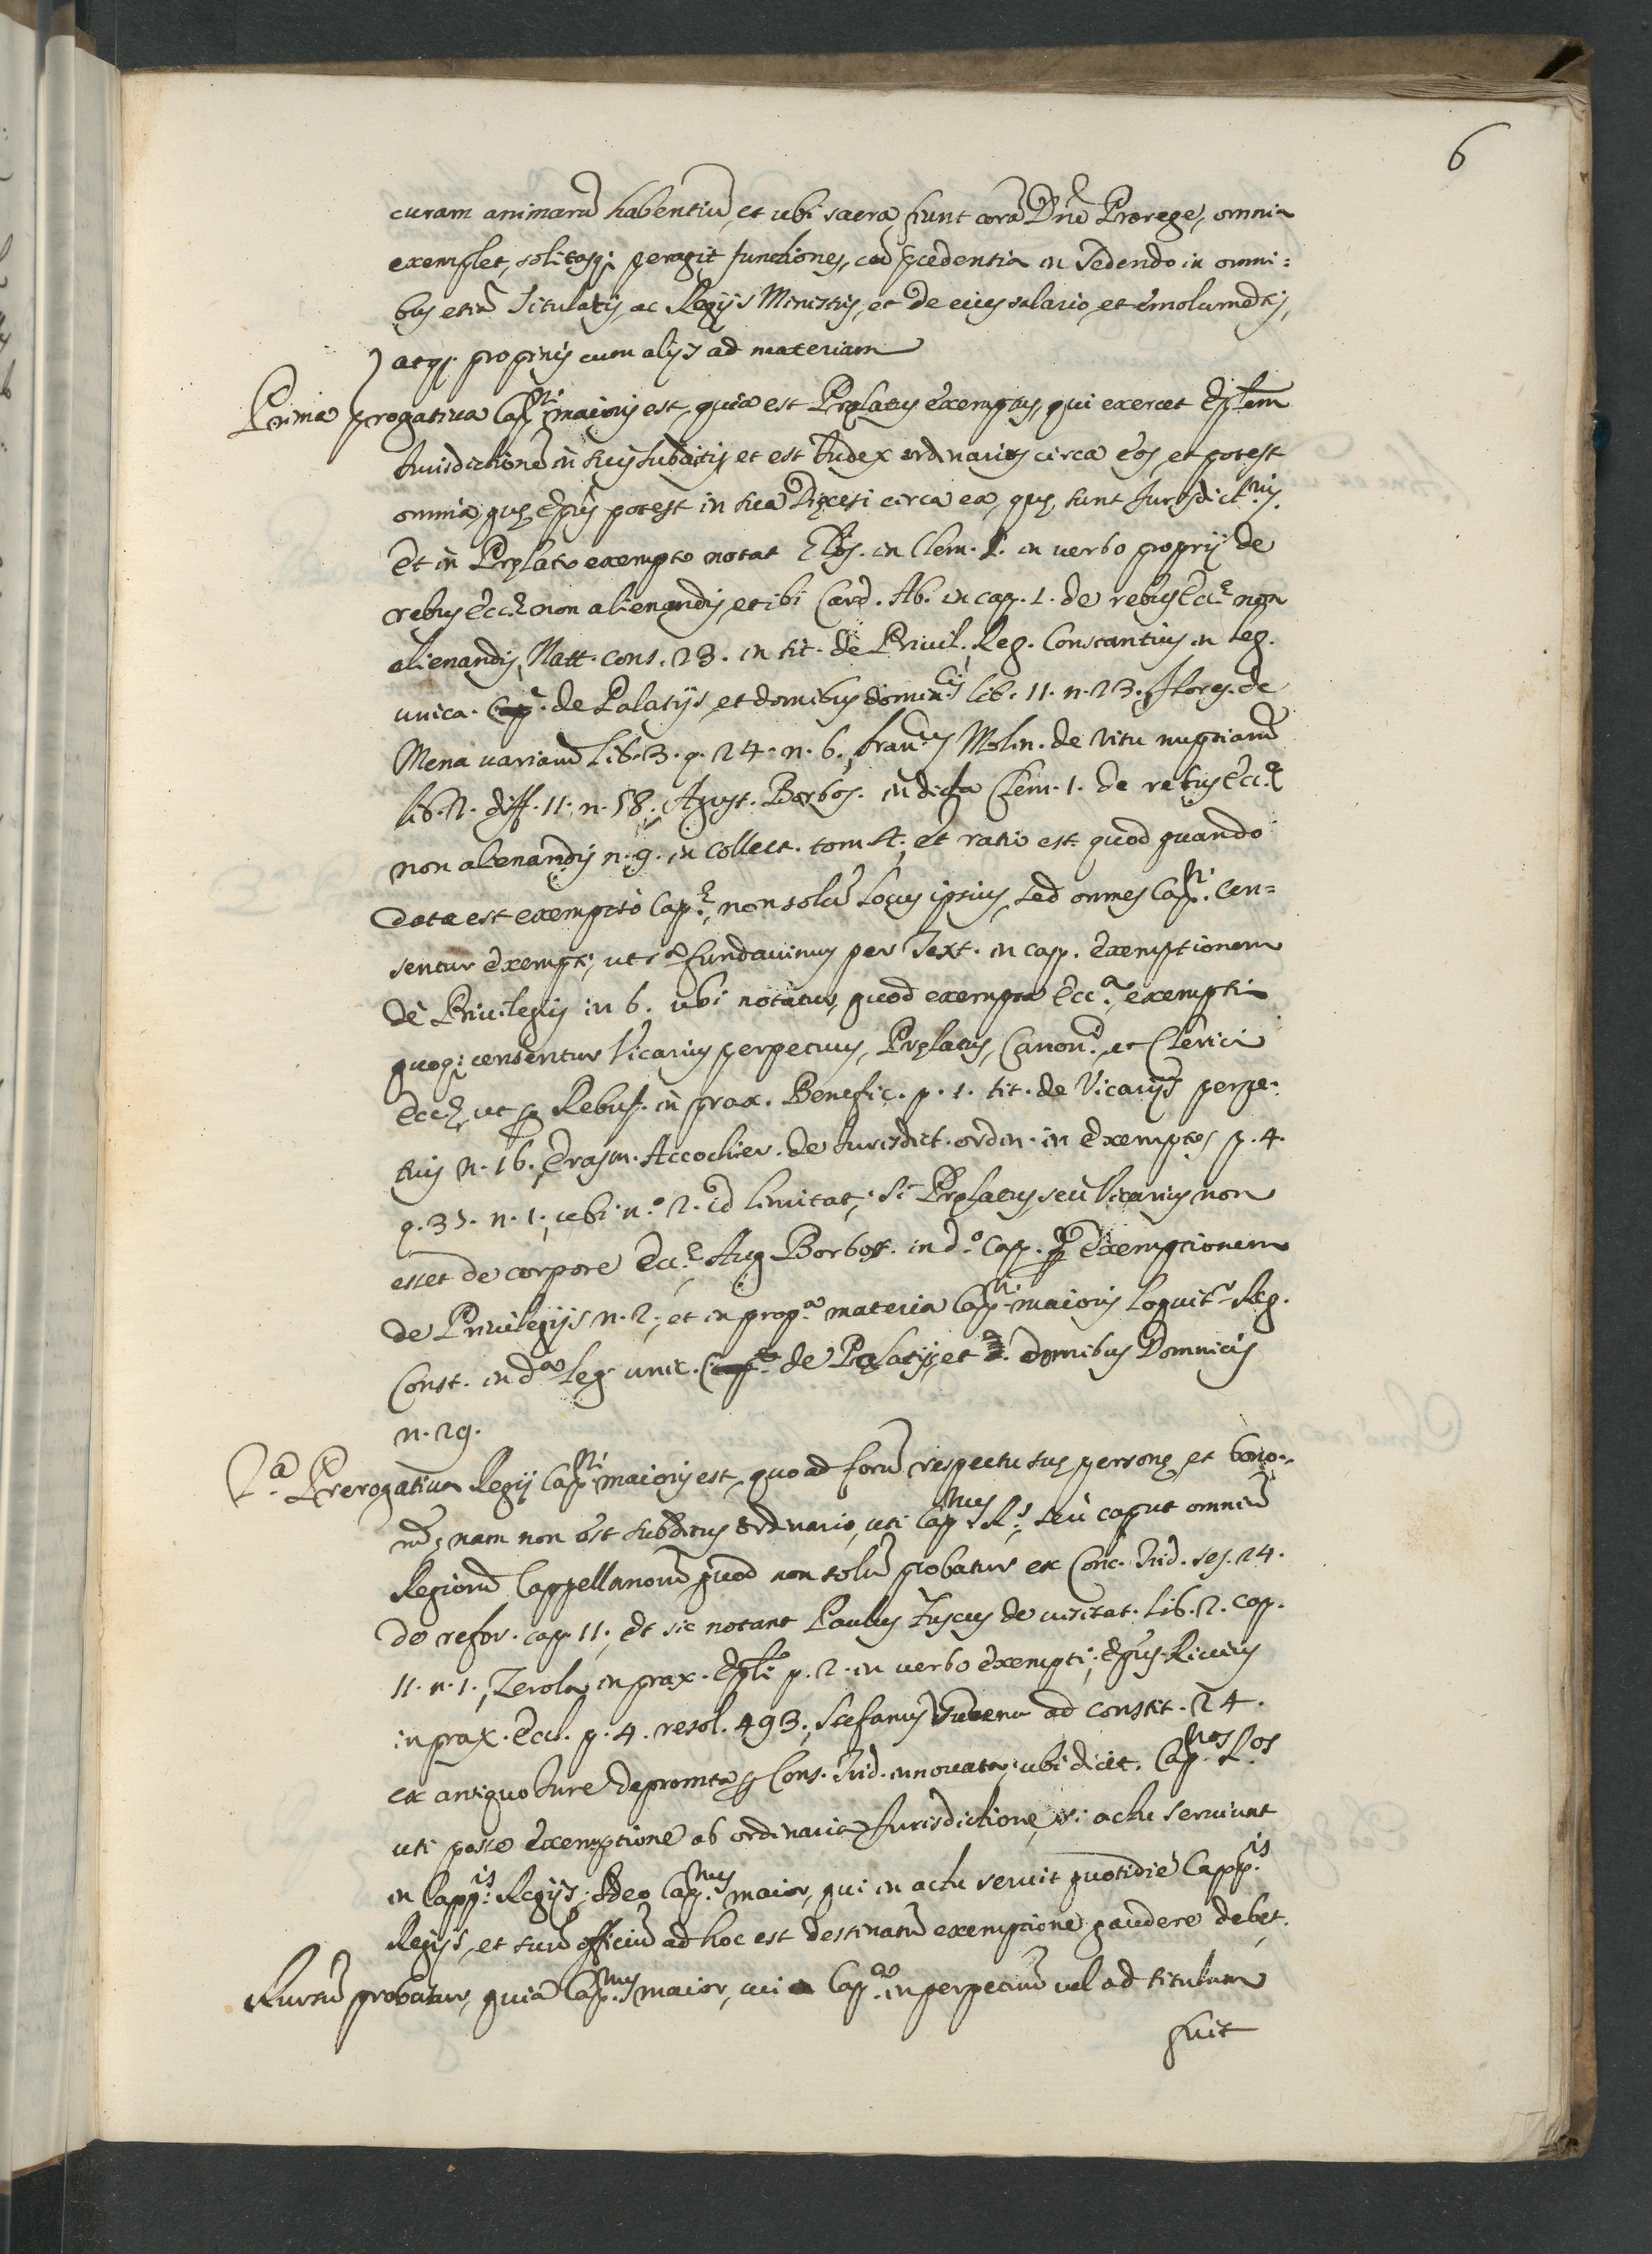 6
curam animarũ habentiũ, et ubi sacra fiunt corã Dño Prorege, omnia
exemplet, solitasq; peragit functiones, cũ pcedentia in sedendo in omni:
bus etiã Titulatis, ac Regijs Ministris, et de eius salario, et emolumẽtis,
atq; propinis cum alijs ad materiam
Prima prerogatiua Cap.ni maioris est, quia est Pręlatus exemptus, qui exercet Ep̃lem
Jurisdictionẽ in suis subditis, et est Judex ordinarius circa eos, et potest
omnia, quę Ep̃us potest in sua Dięcesi circa ea, quę sunt Jurisdict.nis.
Et in Pręlato exempto notat Glos. in Clem. 1. in uerbo proprij de
rebus Ecc.ę non alienandis, et ibi Card. Ab. in cap. 1. de rebus Ecc.ę non
alienandis, Natt. cons. 23. in tit. de Priuil. Reg. Constantius in leg.
unica. de Palatijs, et domibus domin.cis lib. 11. n. 23. Flores. de
Mena uariarũ lib. 3. q. 24. n. 6., Fran.cus Molin. de ritu nuptiarũ
lib. 2. diff. 11. n. 58., Agust. Barbos. in dicta Clem. 1. de rebus Ecc.ę
non alienandis n. 9. in collect. tom. 4., et ratio est quod quando
data est exemptio Cap.ę, non solũ Locus ipsius, sed omnes Cap.ni. cen=
sentur exempti, ut sã fundauimus per Text. in cap. exemptionem
de Priuilegijs in 6. ubi notatur, quod exempta Ecc.a exempti
quoq; censentur Vicarius perpetuus, Pręlatus, Canon.ci, et Clerici
Eccę, ut p Rebuf. in prax. Benefic. p. 1. tit. de Vicarijs perpe-
tuis n. 16., Erasm. Accochier. de Jurisdict. ordin. in exemptos p. 4.
q. 35. n. 1., ubi n.o 2. id limitat, si Pręlatus, seu Vicarius non
esset de corpore Ecc.ę, Aug Barbos. in d.o cap. exemptionem
de Priuilegijs n. 2., et in prop.a materia Cap.ni maioris loquit.r Reg.
Const. in d.a leg. unic. de Palatijs, et domibus Domnicis
n. 29.
2.a Prerogatiua Regij Cap.ni maioris est, quo ad forũ respectu suę personę, et bono-
rũ, nam non est subditus ordinario, uti Cap.nus R.s, seu caput omniũ
Regiorũ Cappellanorũ, quod non solũ probatur ex Conc. Trid. ses. 24.
de refor. cap. 11., et sic notant Paulus Fuscus de uisitat. lib. 2. cap.
11. n. 1., Zerola in prax. Ep̃li p. 2. in uerbo exempti, Ep̃us Riccius
in prax. Eccl. p. 4. resol. 493., Stefanus ad constit. 24.
ex antiquo Jure depromta p Cons. Trid. innouata, ubi dicit. Cap.nos R.os
uti posse exemptione ab ordinaria Jurisdictione, si actu seruiunt
in Capp.is Regijs; Adeo Cap.nus maior, qui in actu seruit quotidie Capp.is
Regijs, et suũ officiũ ad hoc est destinatũ exemptione gaudere debet.
Rursũ probatur, quia Cap.nus maior, cui Cap.a in perpetuũ uel ad titulum
fuit